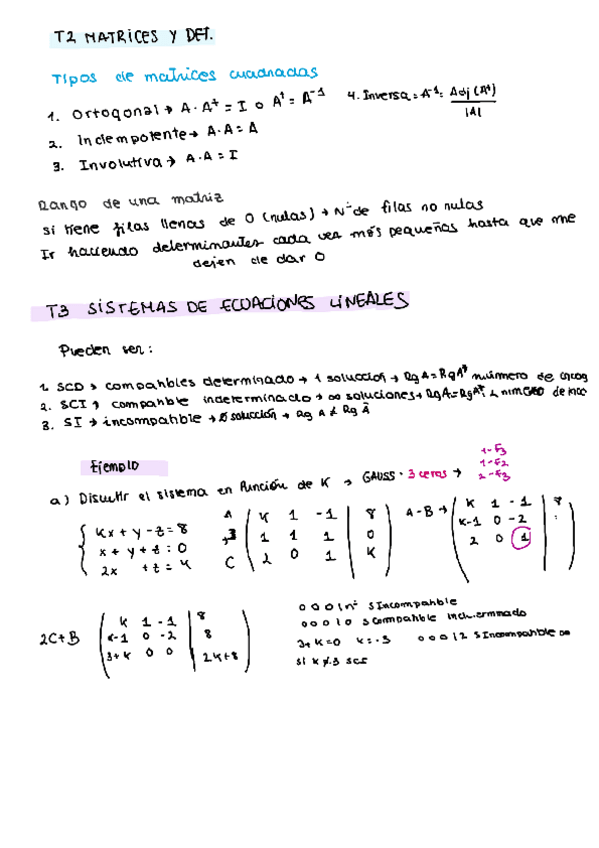 T2 MATRICES Y DET.
Tipos de matrices cuadradas
1. Ortogonal → A · A^t = I o A^t = A^-1
4. Inversa = A^-1 = Adj (A^t) / |A|
2. Indempotente → A · A = A
3. Involutiva → A · A = I
Rango de una matriz
Si tiene filas llenas de 0 (nulas) → Nº de filas no nulas
Ir haciendo determinantes cada vez más pequeños hasta que me
dejen de dar 0
T3 SISTEMAS DE ECUACIONES LINEALES
Pueden ser:
1. SCD → compatibles determinado → 1 solución → Rg A = Rg A número de incog
2. SCI → compatible indeterminado → ∞ soluciones → Rg A = Rg A
3. SI → incompatible → ∄ solucción → Rg A ≠ Rg Ā
Ejemplo
a) Discutir el sistema en función de K → GAUSS · 3 ceros →
1-F3
1-F2
2-F3
Kx + y - z = 8
x + y + z = 0
2x + z = K
A K 1 -1 | 8
B 1 1 1 | 0
C 2 0 1 | K
A-B →
K 1 -1 | 8
K-1 0 -2
2 0 1
2C+B
K 1 -1 | 8
K-1 0 -2 | 8
3+K 0 0 | 2K+8
0 0 0 | nº S Incompatible
0 0 0 | 0 S Compatible
3+K=0 K=-3 0 0 0 | 2 S Incompatible
Si K ≠ -3